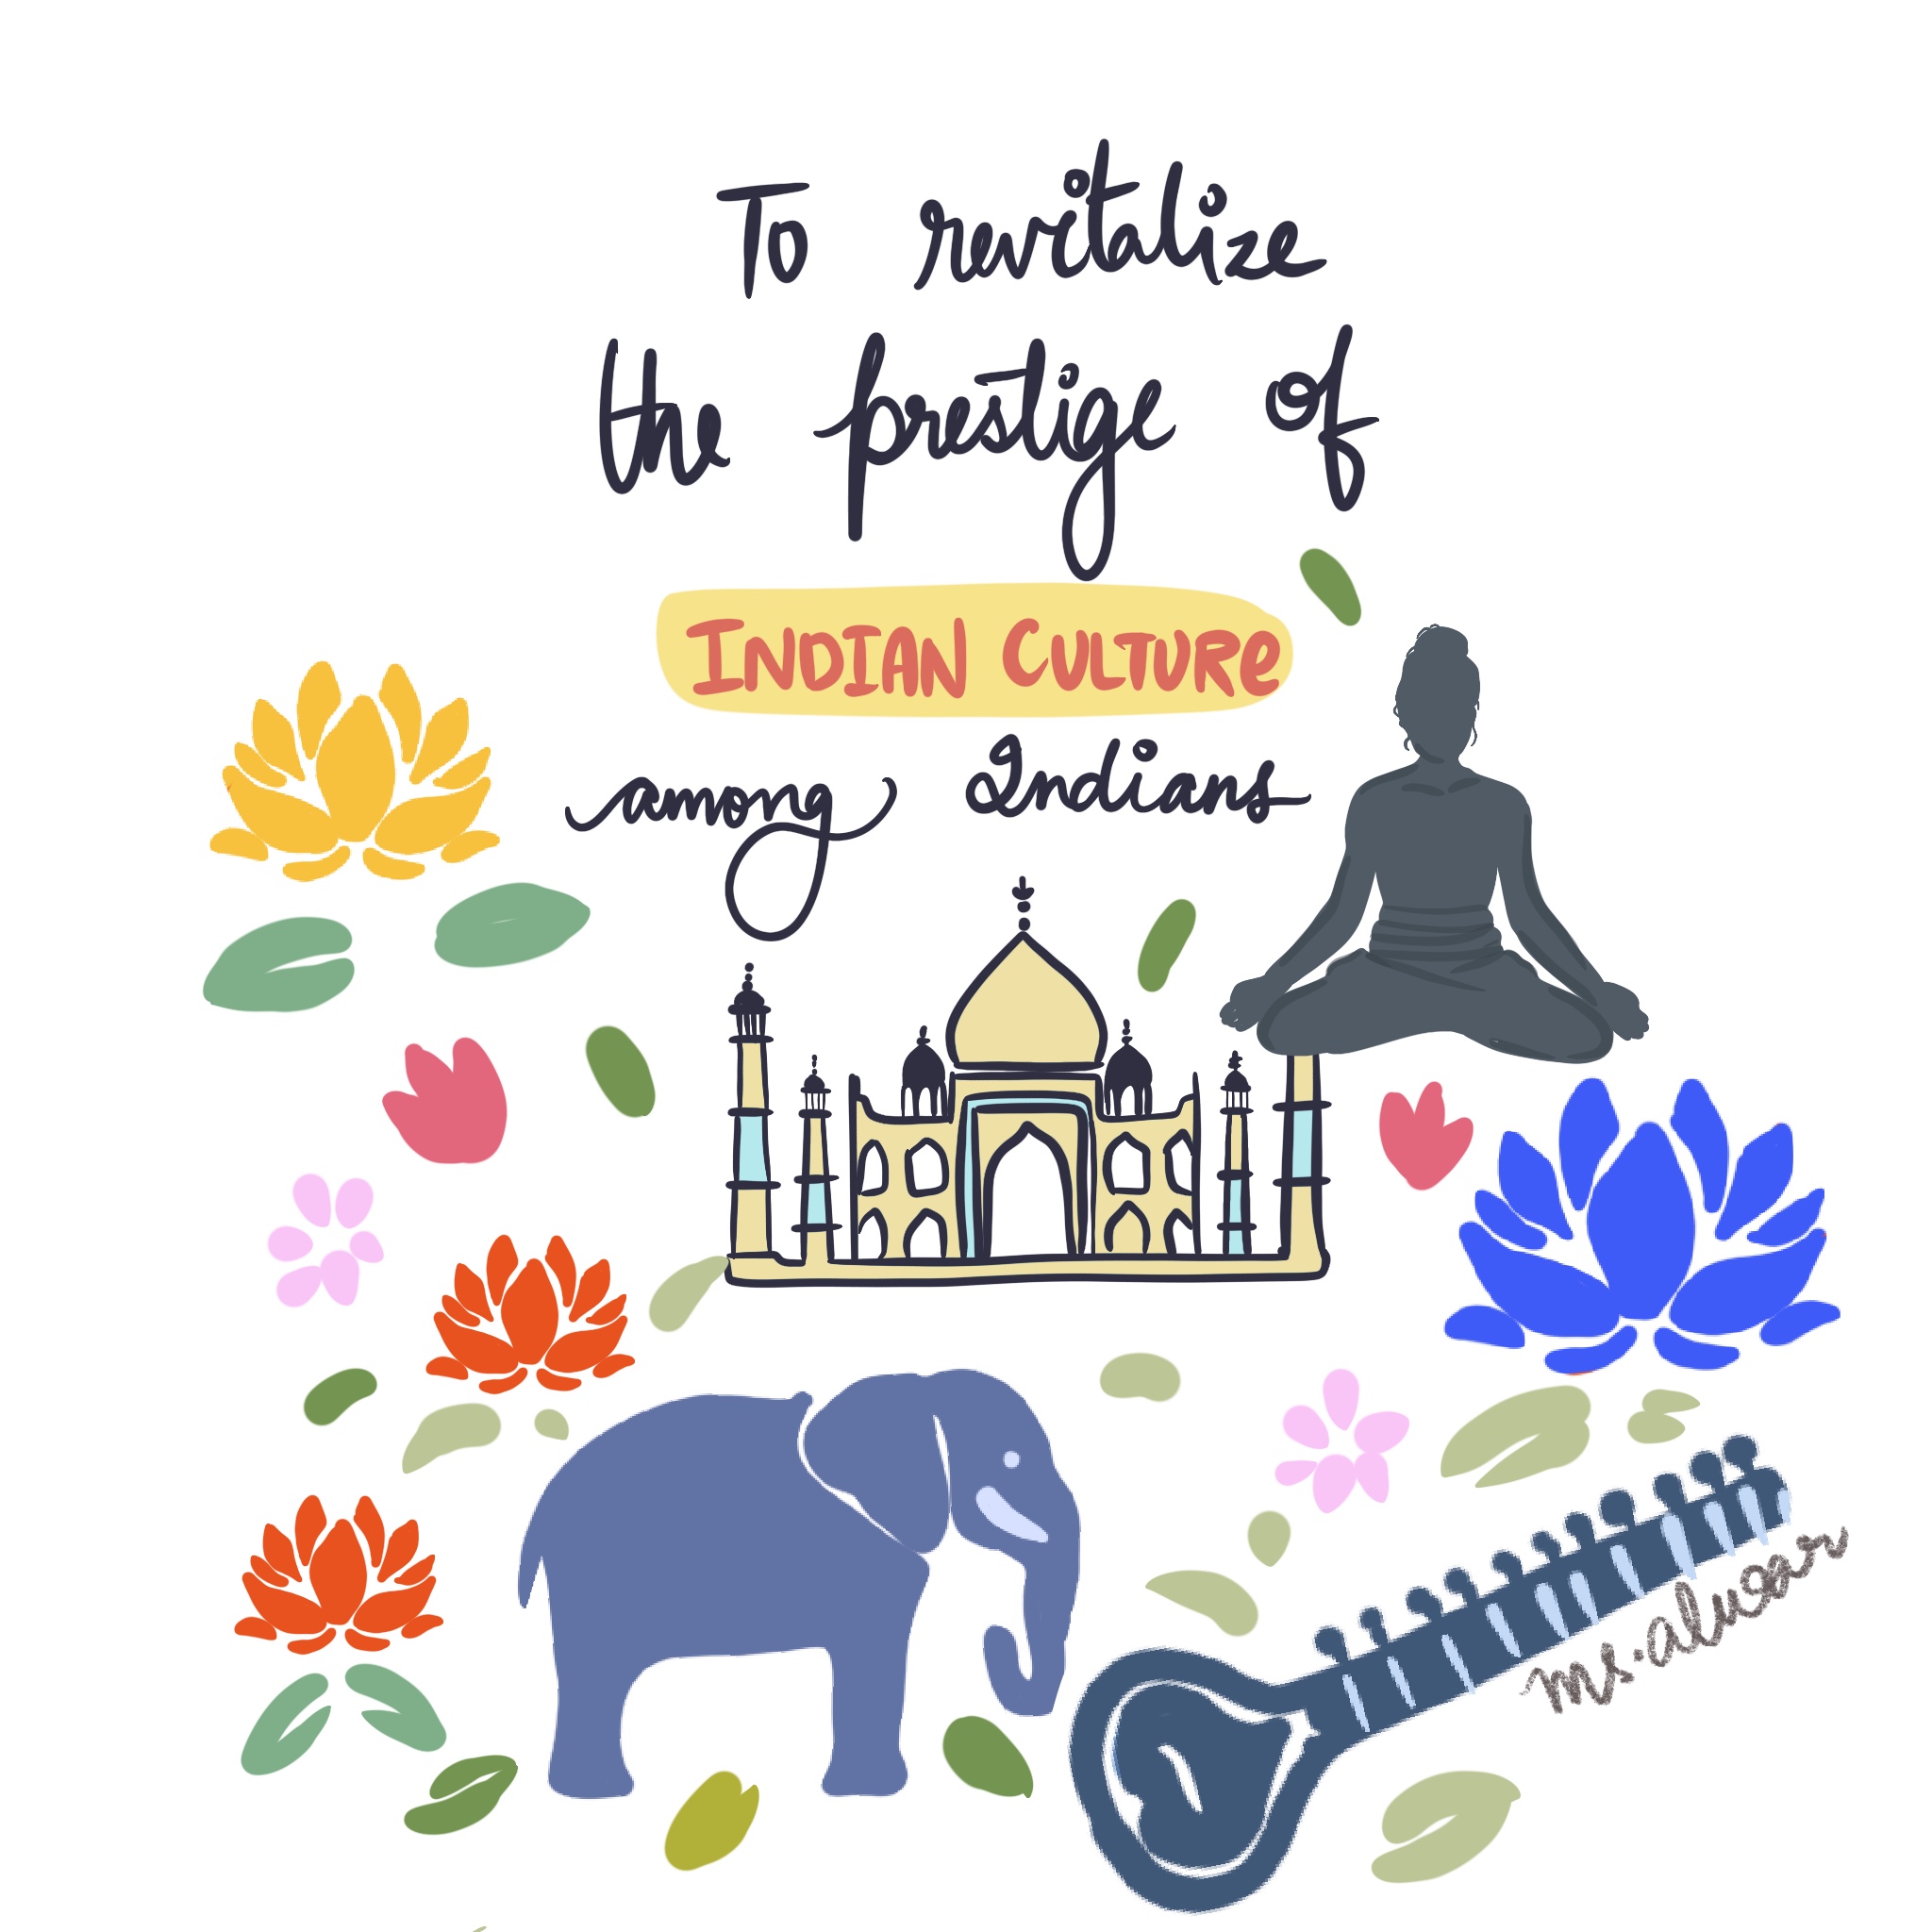 To revitalize
the prestige of
INDIAN CULTURe
among Indians
ms.alwar